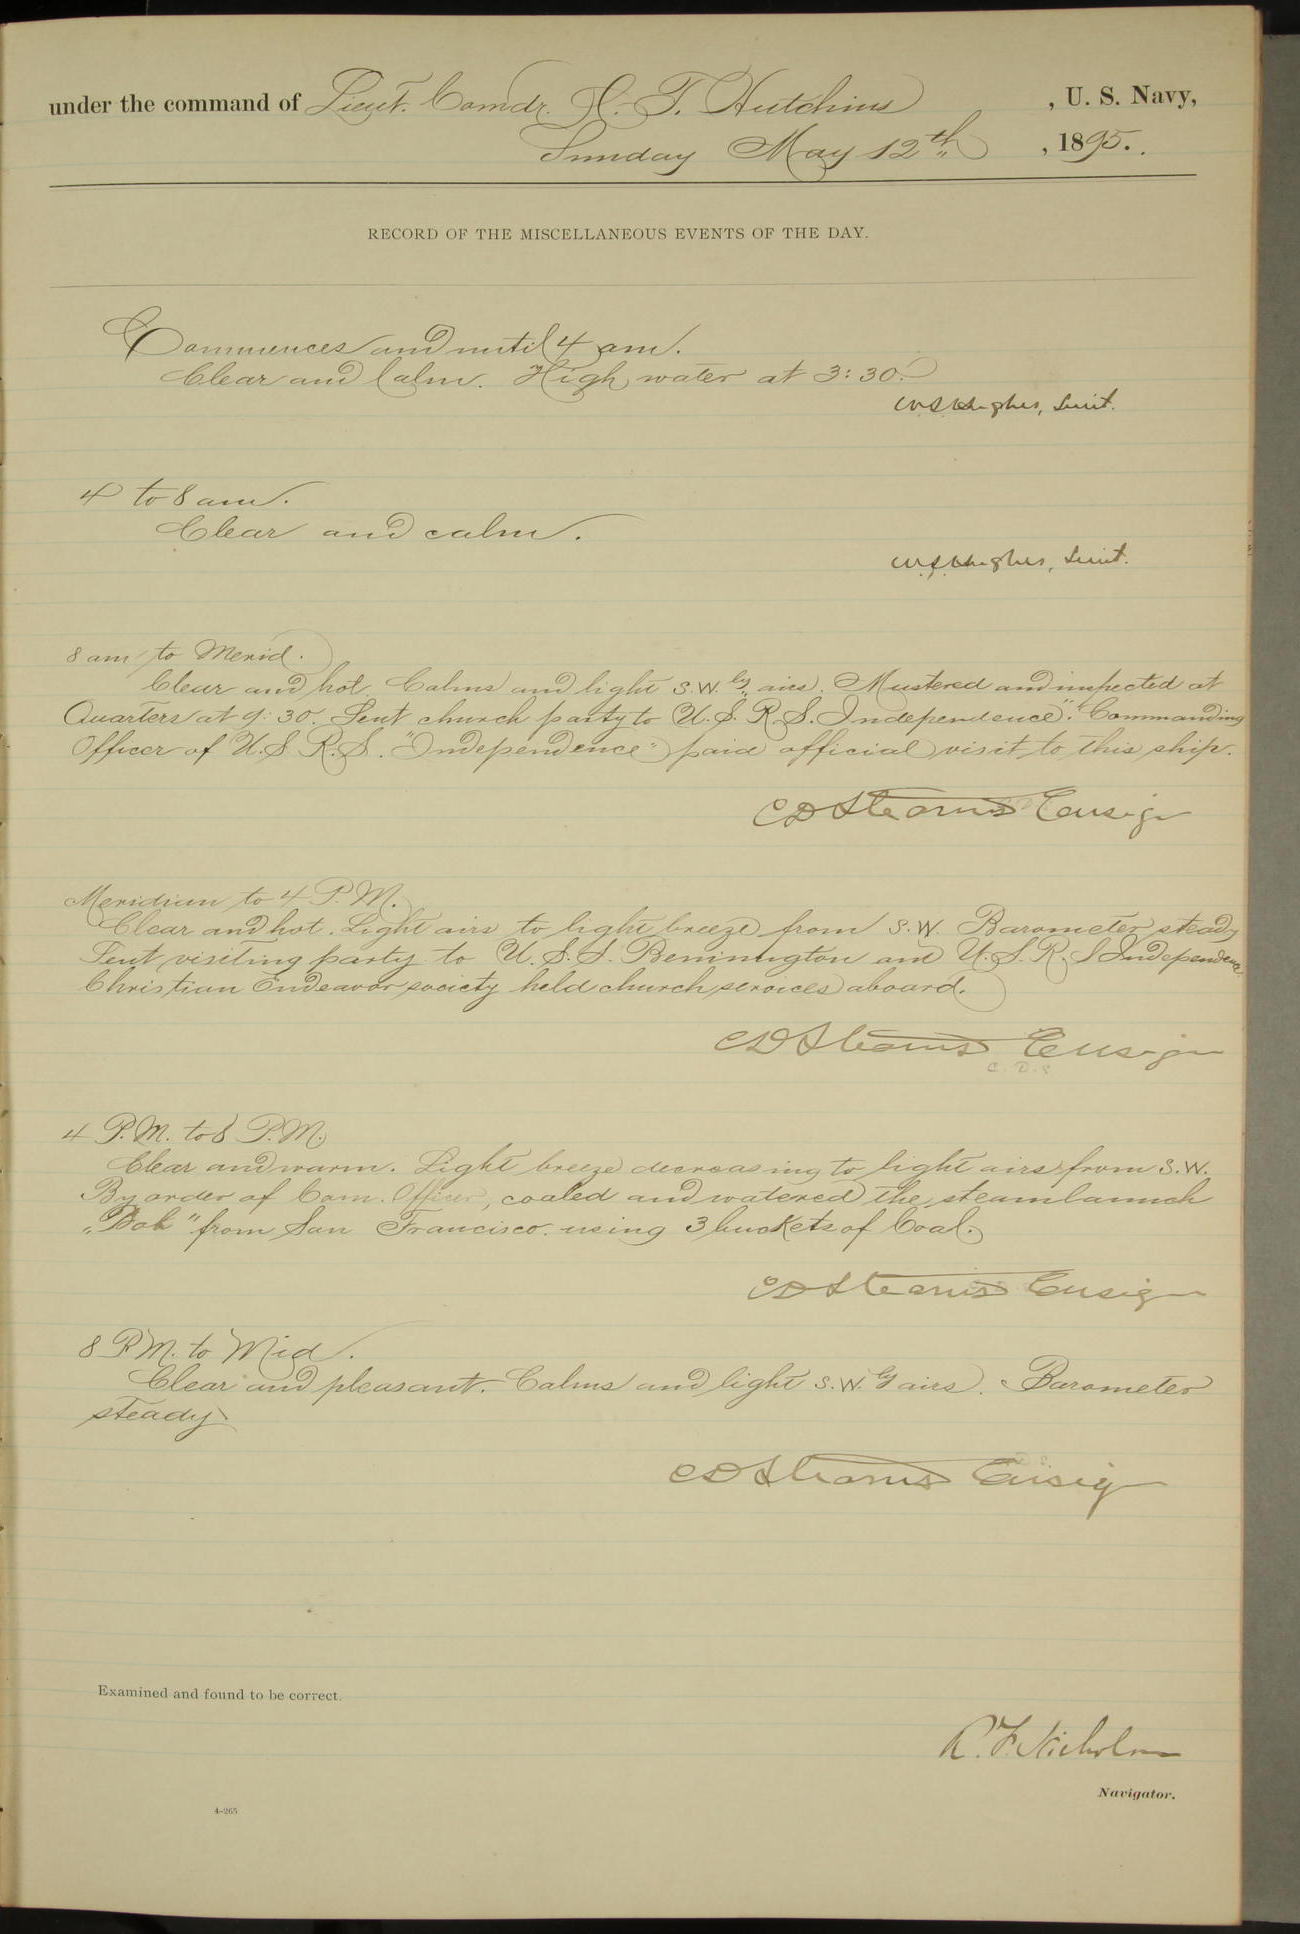 under the command of Lieut. Comdr. C. T. Hutchins, U. S. Navy,
Sunday May 12th, 1895.
RECORD OF THE MISCELLANEOUS EVENTS OF THE DAY.
Commences and until 4 am.
Clear and Calm. High water at 3:30.
W S Hughes, Lieut.
4 to 8 am.
Clear and calm.
W S Hughes, Lieut.
8 am to Merid.
Clear and hot. Calms and light S.W.ly airs. Mustered and inspected at
Quarters at 9:30. Sent church party to U.S.R.S. Independence". Commanding
Officer of U.S.R.S. "Independence" paid official visit to this ship.
C D Stearns Ensign
Meridian to 4 P.M.
Clear and hot. Light airs to light breeze from S.W. Barometer steady
Sent visiting party to U.S.S. Bennington and U.S.R.S Independence
Christian Endeavor society held church services aboard.
C D Stearns Ensign
C. D. S
4 P.M. to 8 P.M.
Clear and warm. Light breeze decreasing to light airs from S.W.
By order of Com. Officer, coaled and watered the steam launch
"Bob" from San Francisco. using 3 buckets of Coal.
C D Stearns Ensign
8 P.M. to Mid.
Clear and pleasant. Calms and light S.W.ly airs. Barometer
steady
C D Stearns Ensign
Examined and found to be correct.
R. F. Nicholson
Navigator.
4-265